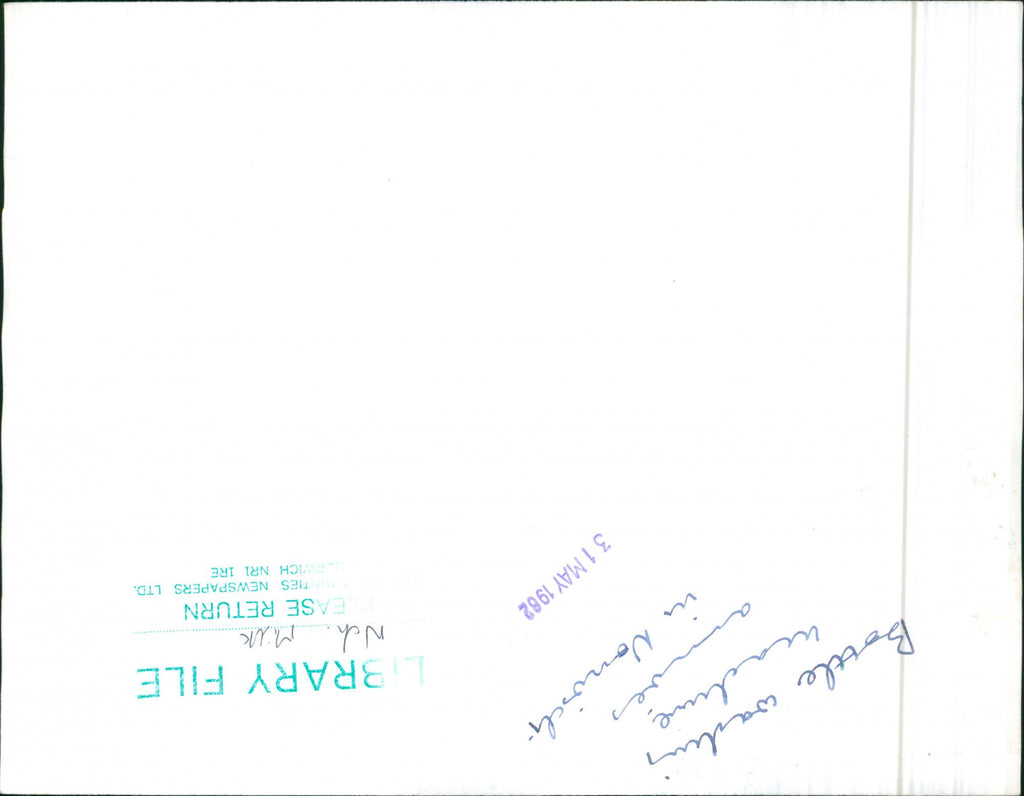 LIBRARY FILE
Nch. Milk
PLEASE RETURN
COUNTIES NEWSPAPERS LTD.
NORWICH NR1 1RE
31 MAY 1982
Bottle washing
machine
arrives
in Norwich